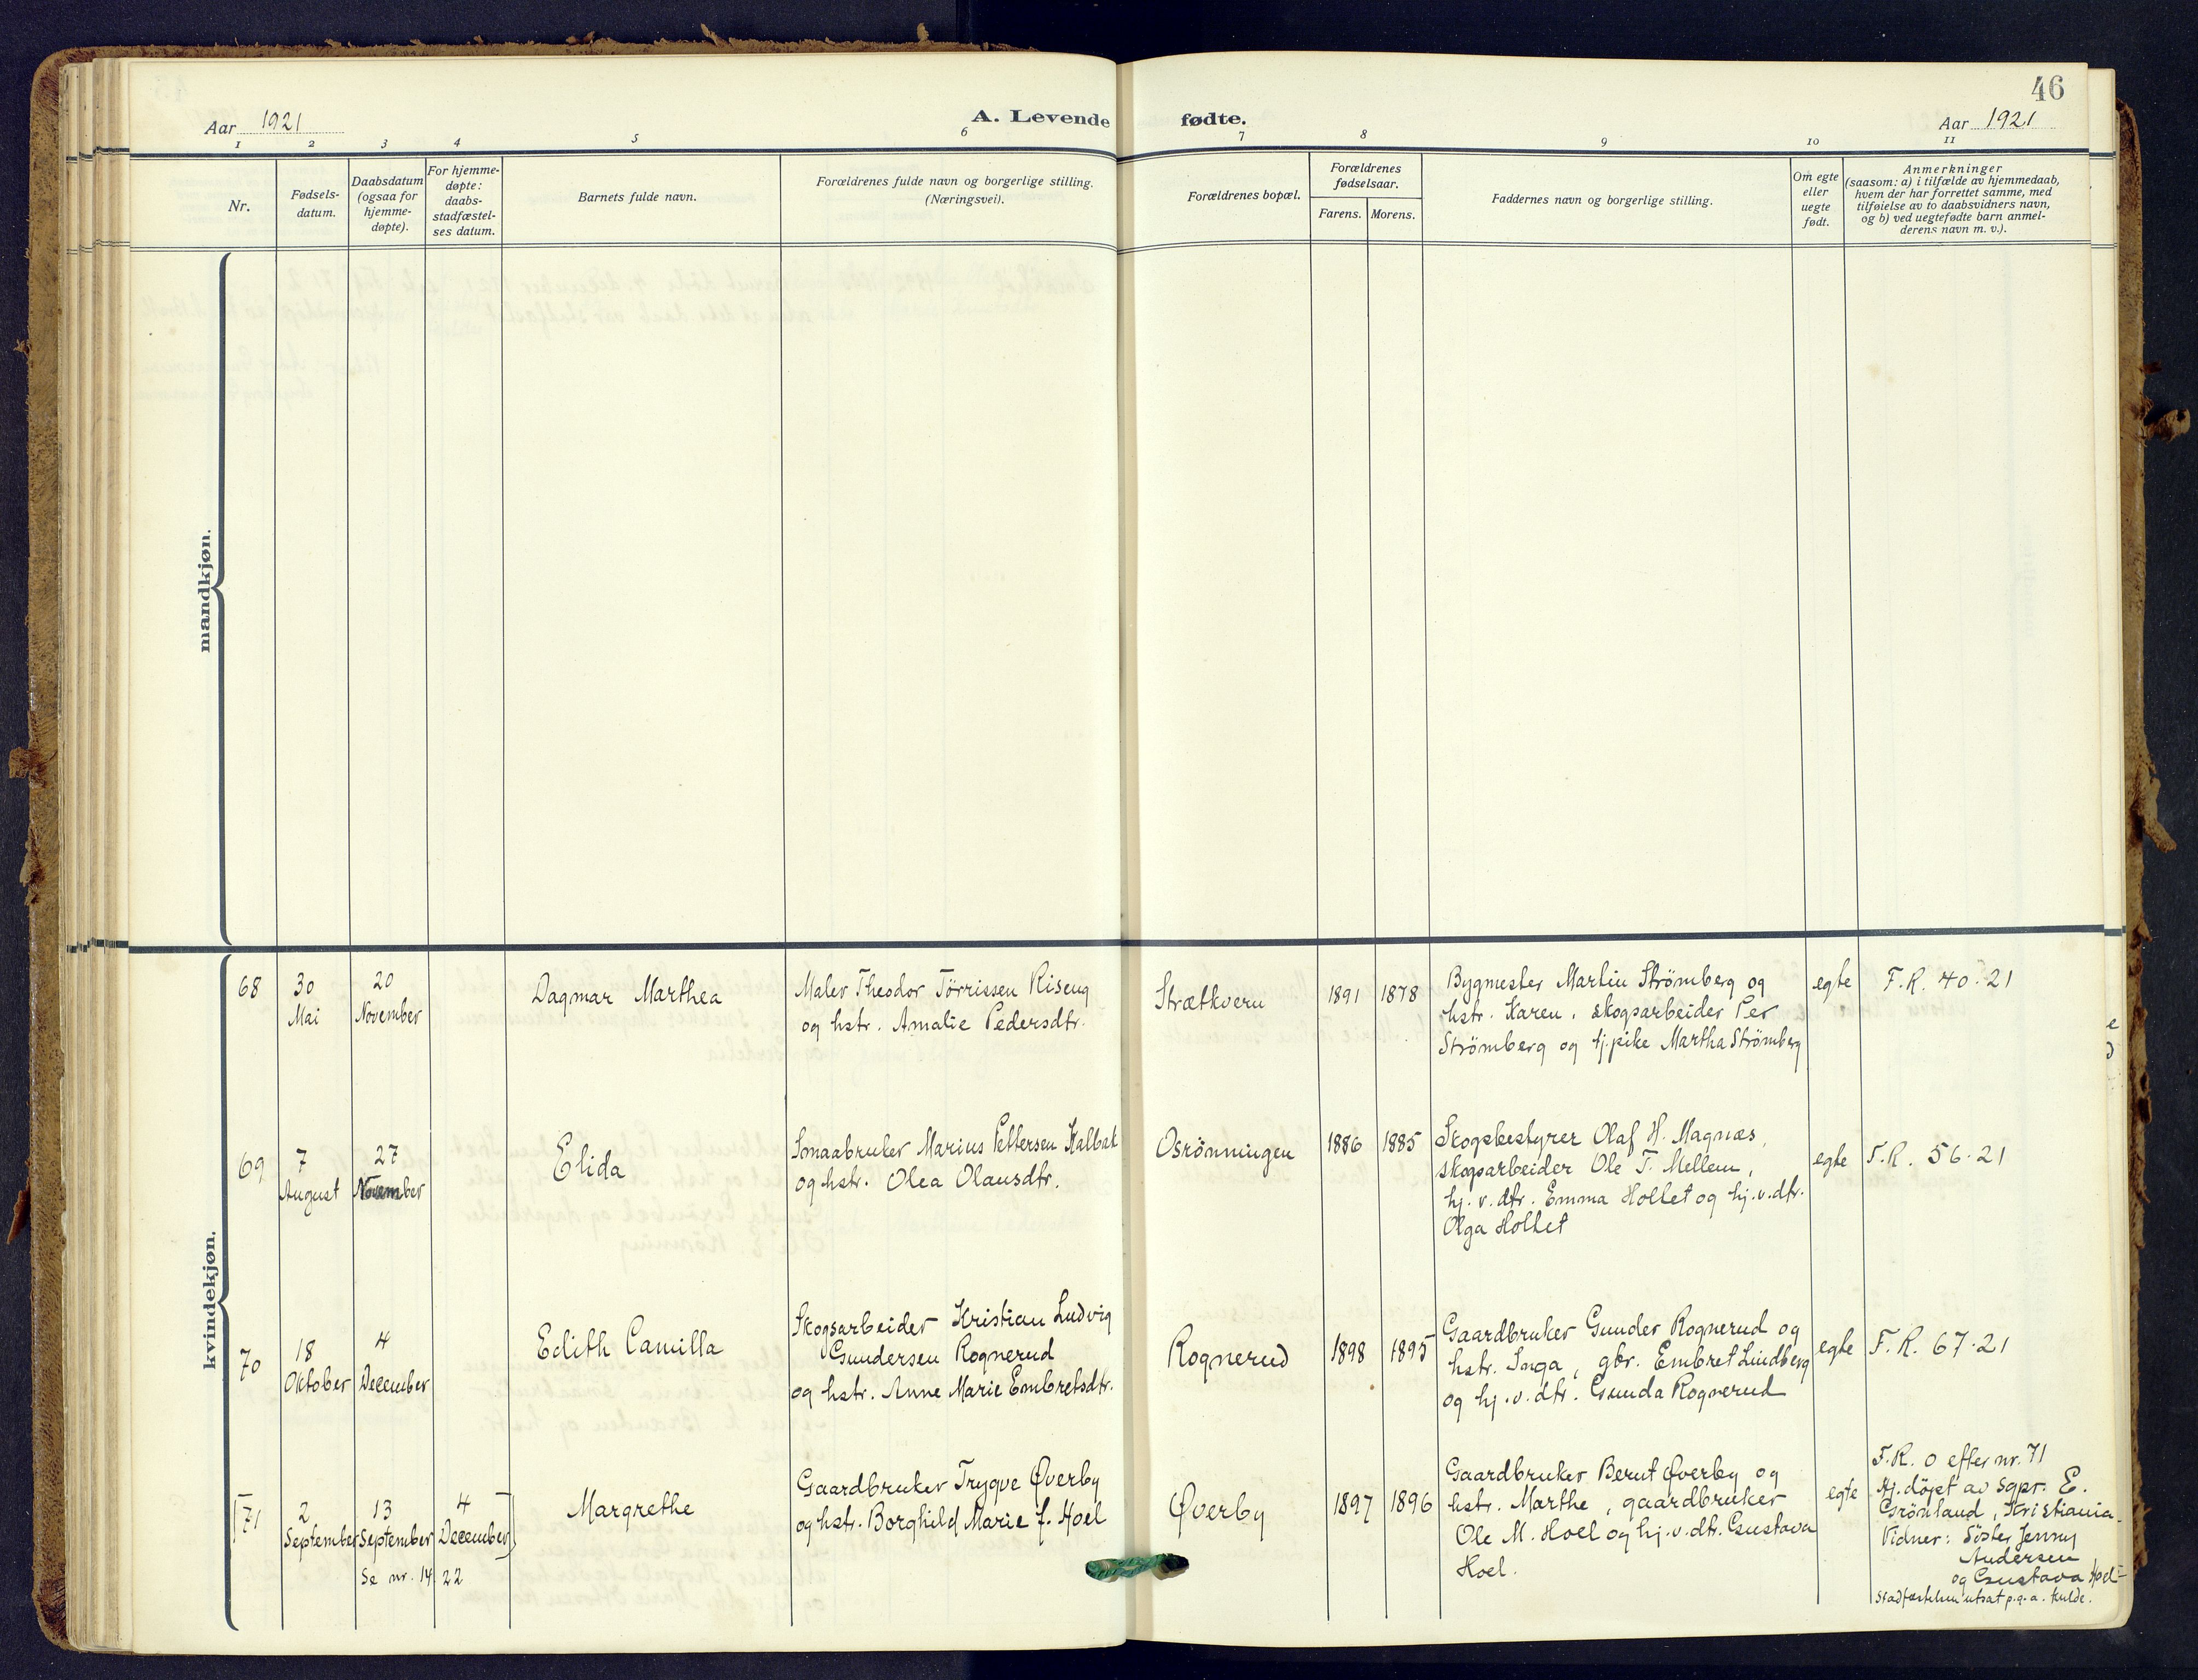 46
Aar 1921
A. Levende fødte.
Aar 1921
1 2 3 4 5 6 7 8 9 10 11
Nr.
Fødsels-
datum.
Daabsdatum
(ogsaa for
hjemme-
døpte).
For hjemme-
døpte:
daabs-
stadfæstel-
ses datum.
Barnets fulde navn.
Forældrenes fulde navn og borgerlige stilling.
(Næringsvei).
Forældrenes bopæl.
Forældrenes
fødselsaar.
Farens. Morens.
Faddernes navn og borgerlige stilling.
Om egte
eller
uegte
født.
Anmerkninger
(saasom: a) i tilfælde av hjemmedaab,
hvem der har forrettet samme, med
tilføielse av to daabsvidners navn,
og b) ved uegtefødte barn anmel-
derens navn m. v.).
mandkjøn.
kvindekjøn.
68
30
Mai
20
November
Dagmar Marthea
Maler Theodor Tørrissen Riseng
og hstr. Amalie Pedersdtr.
Strætkvern
1891
1878
Bygmester Martin Strömberg og
hstr. Karen, skogsarbeider Per
Strömberg og tj.pike Martha Strömberg
egte
F.R. 40-21
69
7
August
27
November
Elida
Smaabruker Marius Pettersen Kalbak
og hstr. Olea Olausdtr.
Osrönningen
1886
1885
Skogsbestyrer Olaf H. Magnæs,
skogsarbeider Ole T. Mellem,
hj. v. dtr. Emma Hollet og hj.v.dtr.
Olga Hollet
egte
F.R. 56-21
70
18
Oktober
4
December
Edith Camilla
Skogsarbeider Kristian Ludvig
Gundersen Rognerud
og hstr. Anne Marie Embretsdtr.
Rognerud
1898
1895
Gaardbruker Gunder Rognerud og
hstr. Inga, gbr. Embret Lindberg
og hj.v.dtr. Gunda Rognerud
egte
F.R. 67-21
[71
2
September
13
September
Se nr. 14. 22
4
December]
Margrethe
Gaardbruker Trygve Øverby
og hstr. Borghild Marie f. Hoel
Øverby
1897
1896
Gaardbruker Bernt Øverby og
hstr. Marthe, gaardbruker
Ole M. Hoel og hj.v.dtr. Gustava
Hoel.
egte
F.R. 0 efter nr. 71
Hj.döpt av sgpr. E.
Grönland, Kristiania.
Vidner: Söster Jenny
Andersen
og Gustava Hoel
Stadfæstelsen utsat p.g.a. kulde.